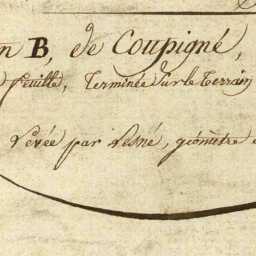 n B, de Coupigné,
feuille, Terminée sur le terrain
Levée par Lesné, géomètre